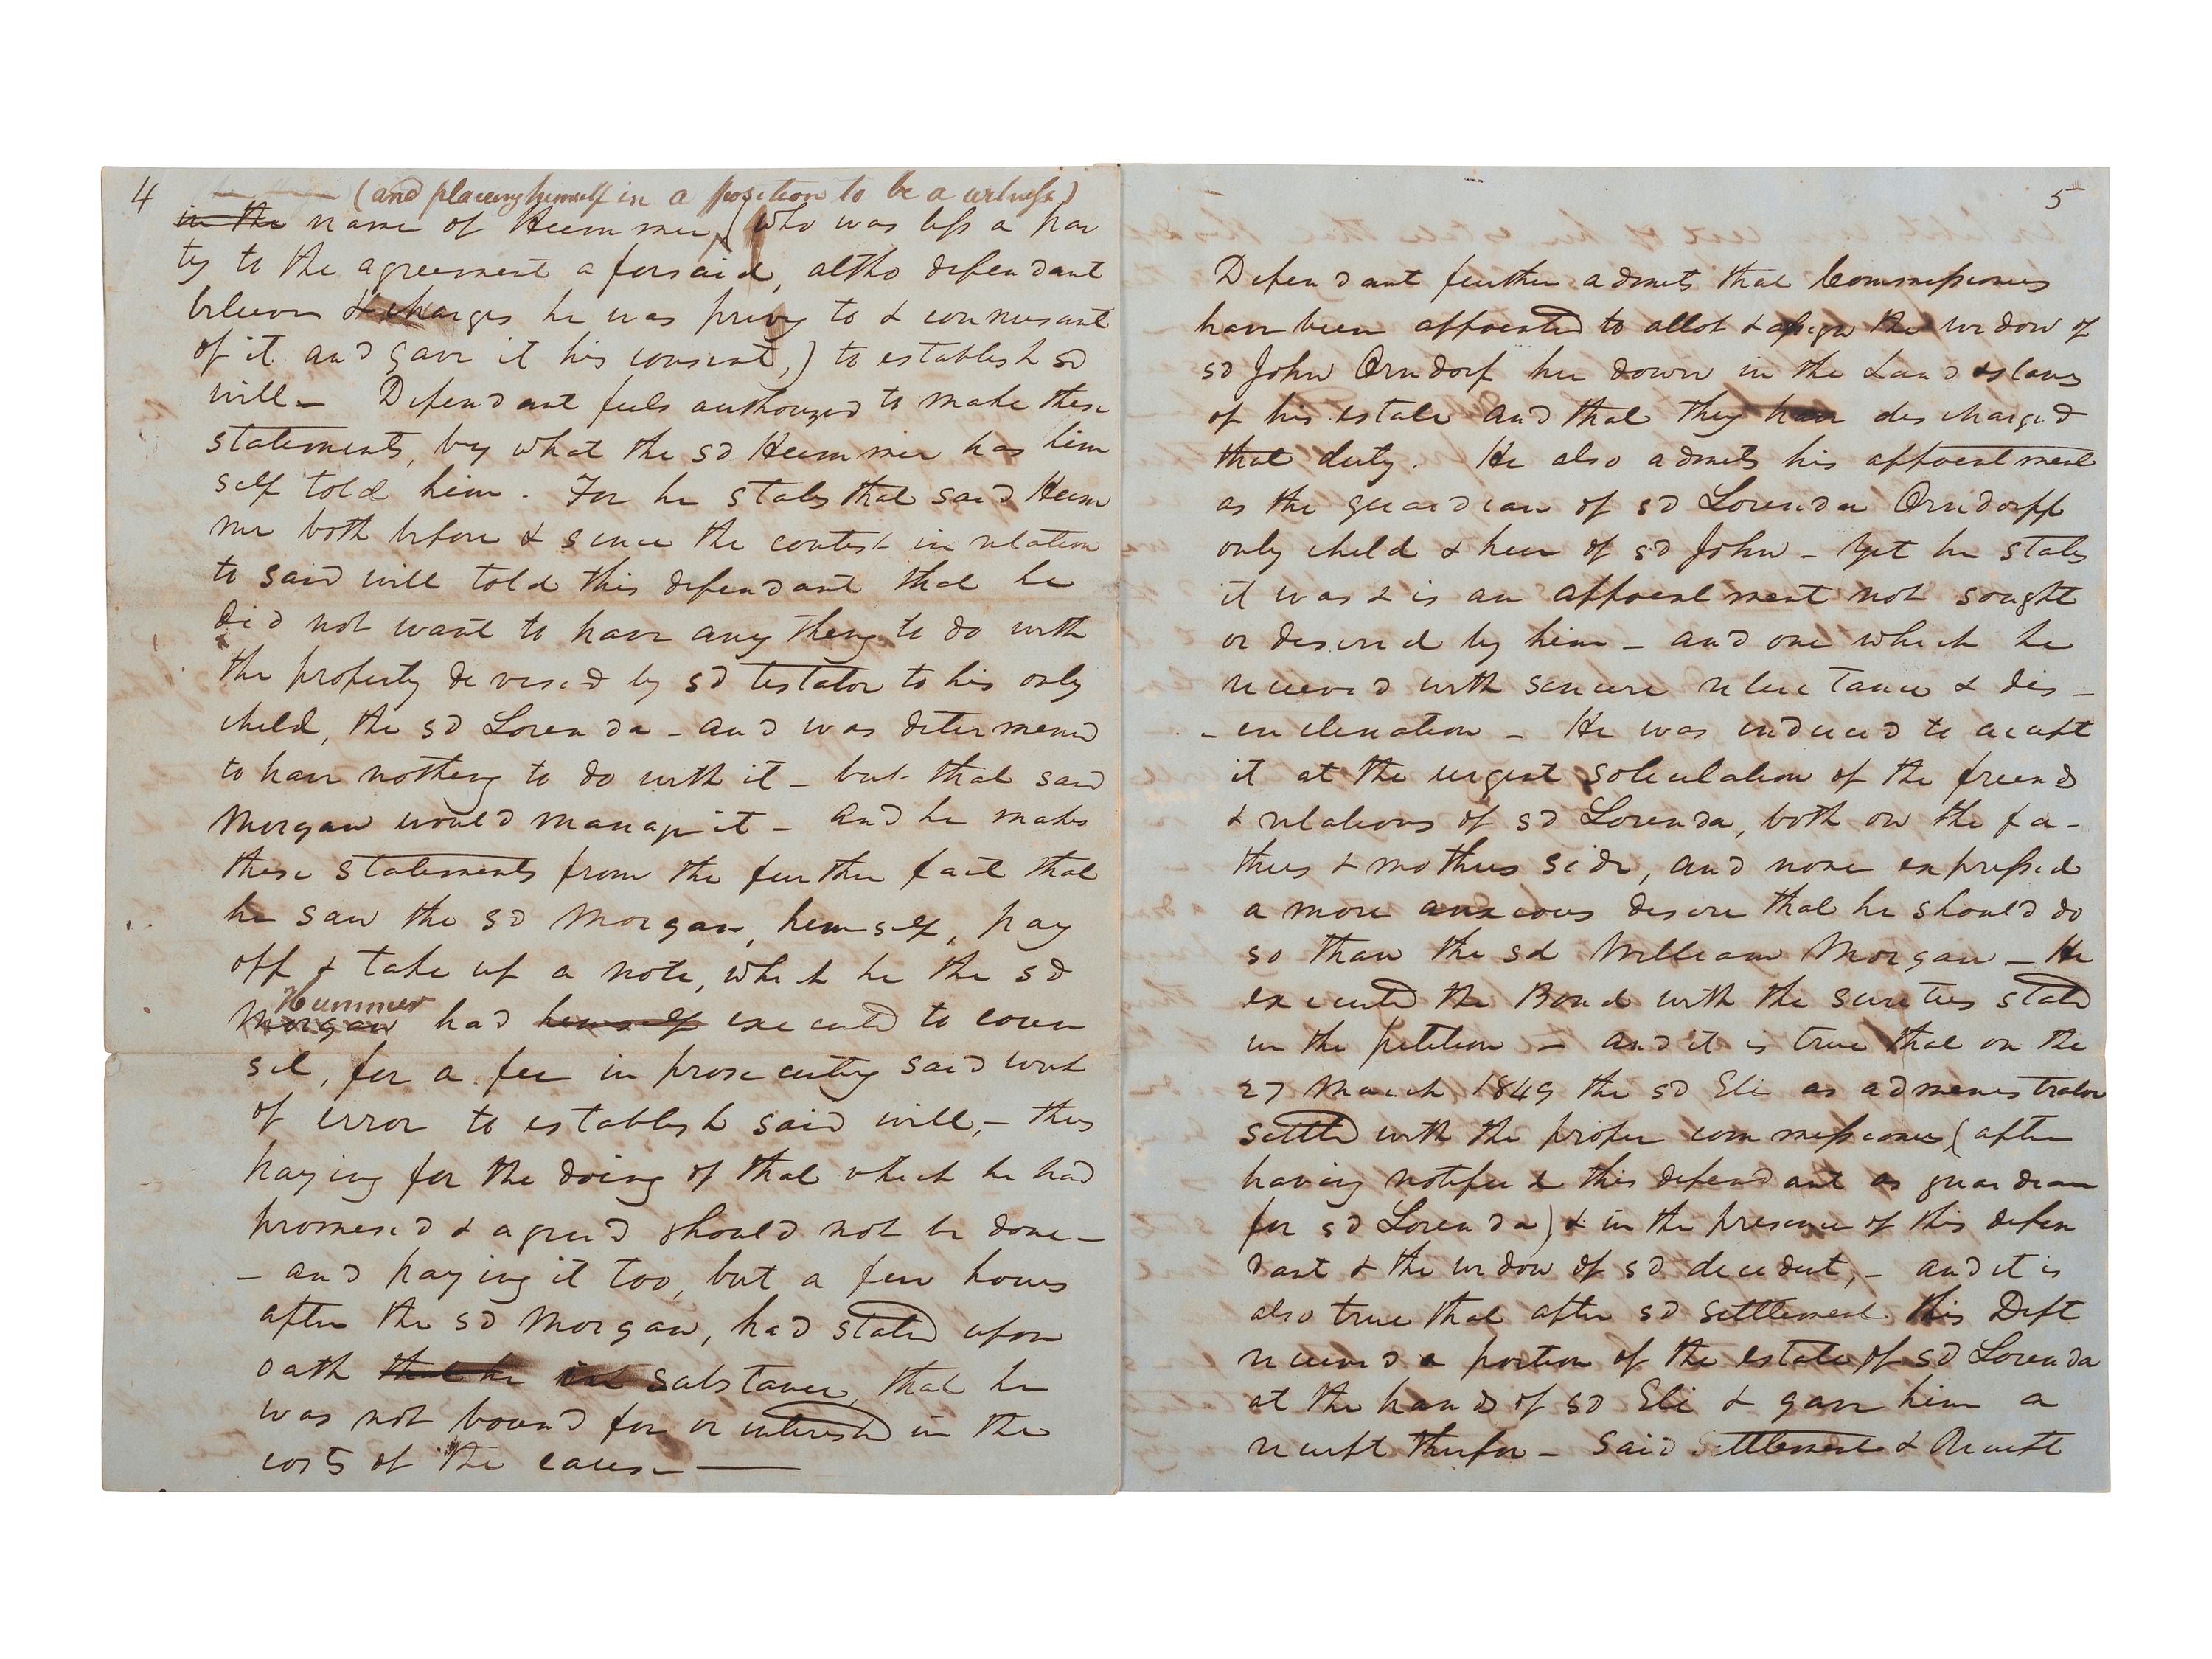 4
(and placing himself in a position to be a witness)
in the name of Hummer, (who was less a par
ty to the agreement aforsaid, altho defendant
believes & charges he was privy to & connusant
of it and gave it his consent,) to establish sd
will – Defendant feels authorized to make these
statements, by what the sd Hummer has him
self told him. For he states that said Hum
mer both before & since the contest in relation
to said will told this defendant that he
did not want to have any thing to do with
the property devised by sd testator to his only
child, the sd Lorenda – and was determined
to have nothing to do with it – but that said
Morgan would manage it – And he makes
these statements from the further fact that
he saw the sd Morgan, himself, pay
off & take up a note, which he the sd
Hummer
Morgan had himself executed to coun
sel, for a fee in prosecuting said writ
of error to establish said will, – thus
paying for the doing of that which he had
promised & agreed should not be done –
– and paying it too, but a few hours
after the sd Morgan, had stated upon
oath that he in substance, that he
was not bound for or interested in the
costs of the cause –
5
Defendant further admits that Commissioners
have been appointed to allot & assign the widow of
sd John Orndorf her dower in the Land & slaves
of his estate and that they have discharged
that duty. He also admits his appointment
as the guardian of sd Lorenda Orndorff
only child & heir of sd John – Yet he states
it was & is an appointment not sought
or desired by him – and one which he
received with sincere reluctance & dis –
– inclination – He was induced to accept
it at the urgent solicitation of the friends
& relations of sd Lorenda, both on the fa –
thers & mothers side, and none expressed
a more anxious desire that he should do
so than the sd William Morgan – He
executed the Bond with the sureties stated
in the petition – and it is true that on the
27 March 1849 the sd Eli as administrator
settled with the proper commissioners (after
having notified this defendant as guardian
for sd Lorenda) & in the presence of this defen
dant & the widow of sd decedent, – and it is
also true that after sd settlement this Deft
received a portion of the estate of sd Lorenda
at the hands of sd Eli & gave him a
receipt therefor – Said settlement & Receipt